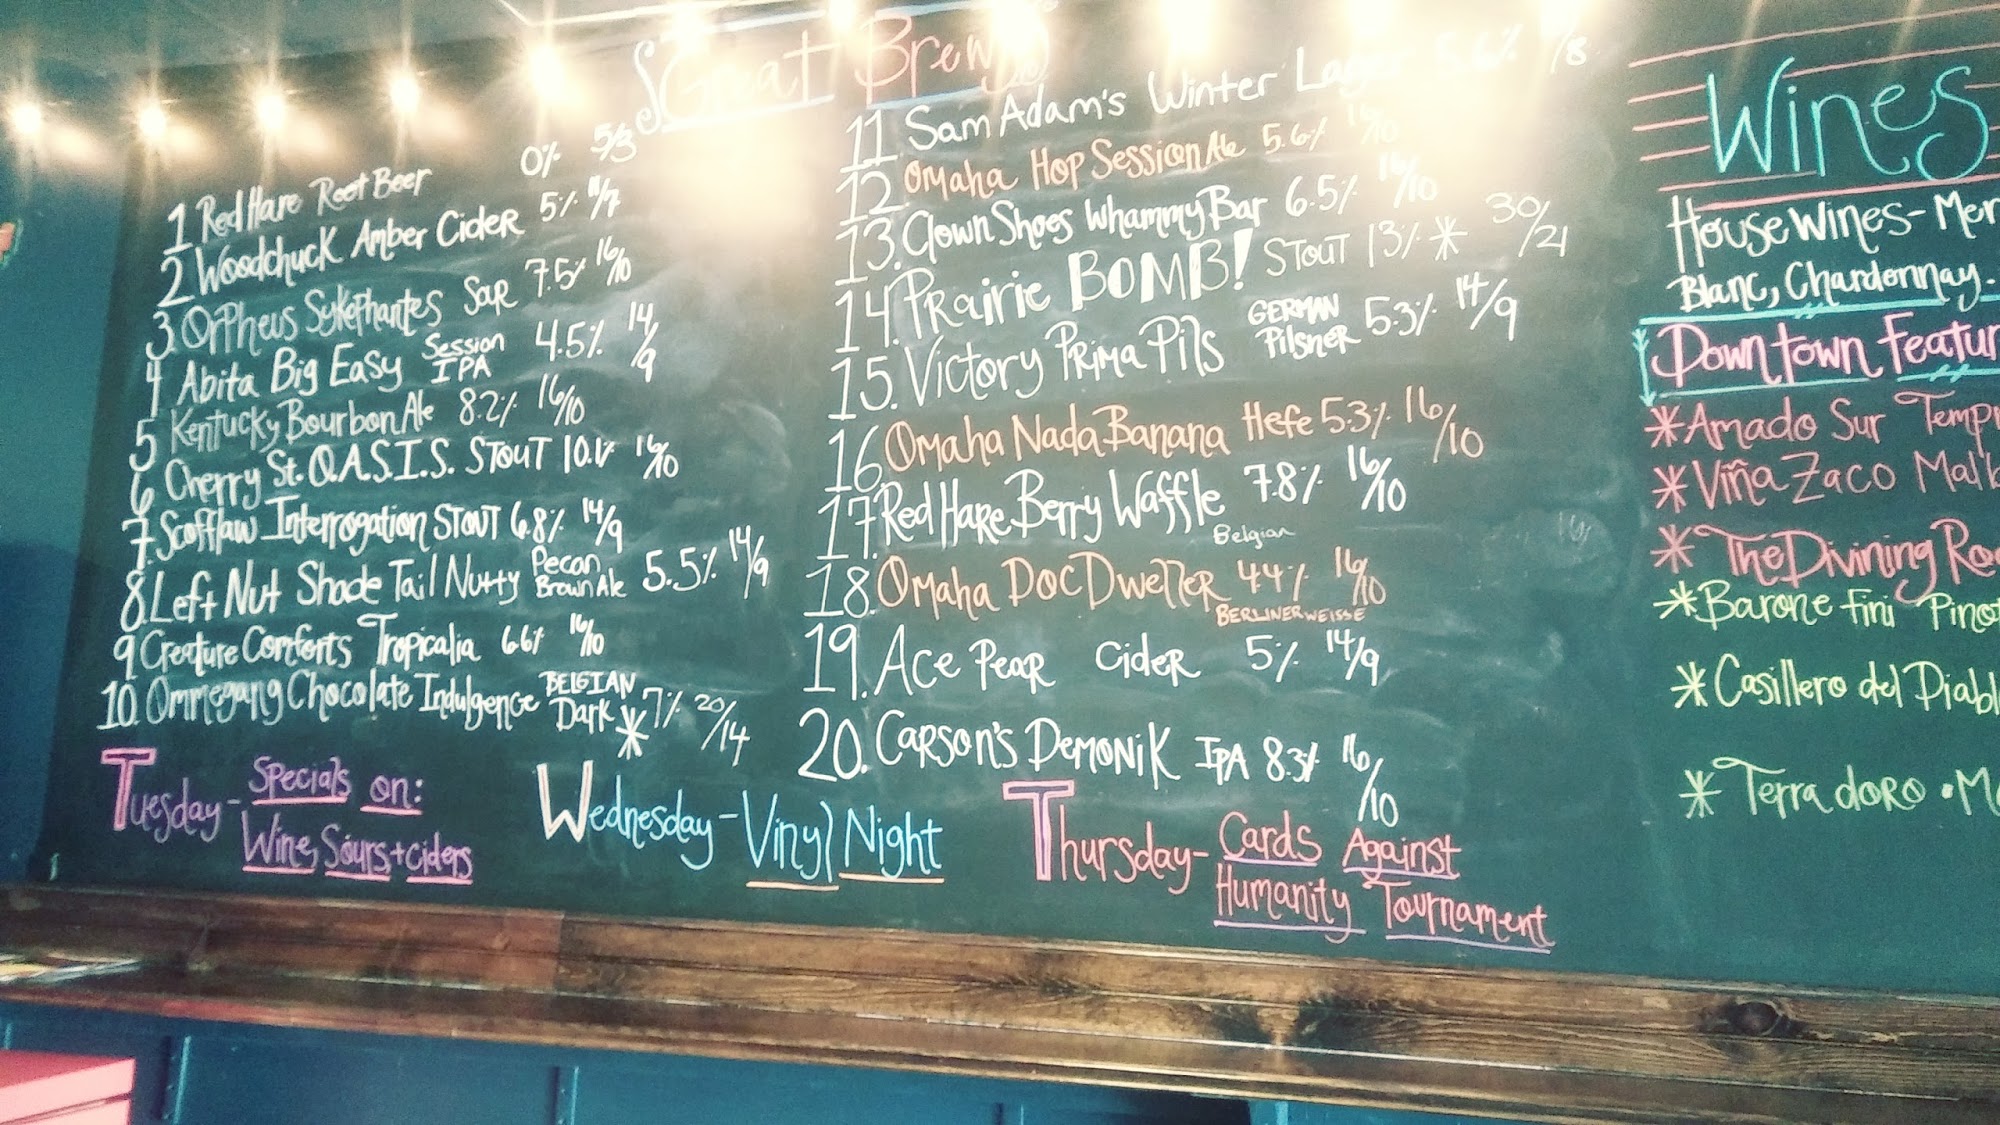 Great Brews
1 Red Hare Root Beer 0% 5/3
2 Woodchuck Amber Cider 5% 11/7
3. Orpheus Sykophantes Sour 7.5% 16/10
4 Abita Big Easy Session IPA 4.5% 14/9
5 Kentucky Bourbon Ale 8.2% 16/10
6 Cherry St. O.A.S.I.S. Stout 10.1% 16/10
7. Scofflaw Interrogation Stout 6.8% 14/9
8. Left Nut Shade Tail Nutty Pecan Brown Ale 5.5% 14/9
9 Creature Comforts Tropicalia 6.6% 16/10
10. Ommegang Chocolate Indulgence Belgian Dark * 7% 20/14
11. Sam Adam's Winter Lager 5.6% /8
12. Omaha Hop Session Ale 5.6% 16/10
13. Clown Shoes Whammy Bar 6.5% 16/10
14. Prairie BOMB! Stout 13% * 30/21
15. Victory Prima Pils German Pilsner 5.3% 14/9
16. Omaha Nada Banana Hefe 5.3% 16/10
17. Red Hare Berry Waffle Belgian 7.8% 16/10
18. Omaha Doc Dweller Berlinerweisse 4.4% 16/10
19. Ace Pear Cider 5% 14/9
20. Carson's Demonik IPA 8.3% 16/10
Tuesday - Specials on:
Wine, Sours + Ciders
Wednesday - Vinyl Night
Thursday - Cards Against
Humanity Tournament
Wines
House Wines - Mer
Blanc, Chardonnay.
Downtown Featur
* Amado Sur Temp
* Viña Zaco Malb
* The Divining Ro
* Barone Fini Pino
* Casillero del Diabl
* Terra doro • M